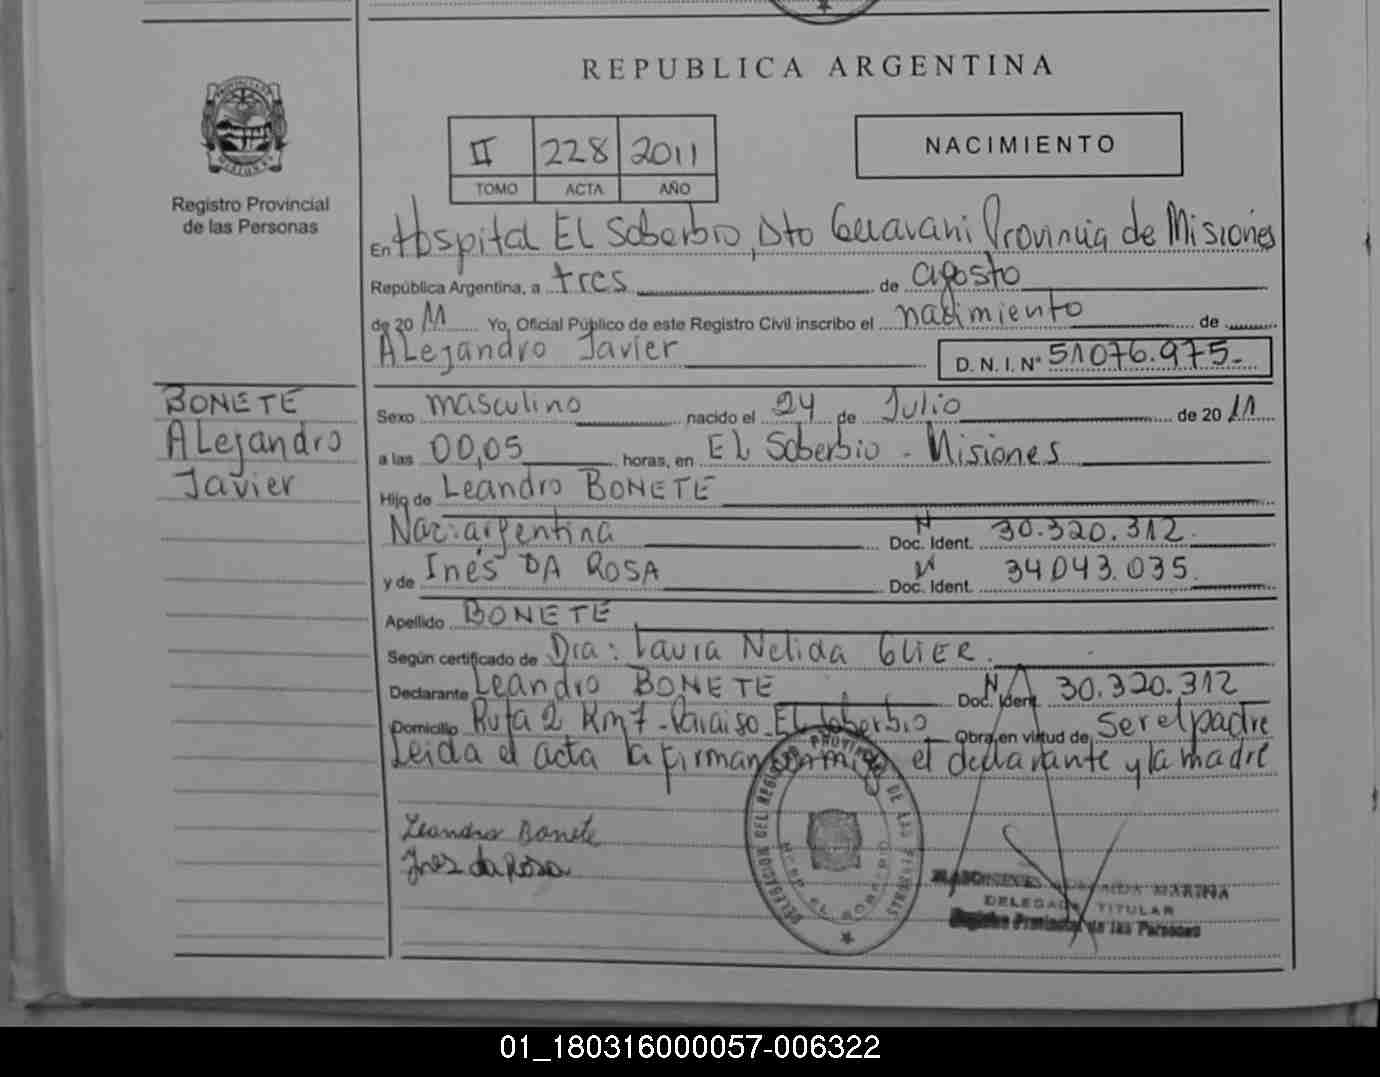 REPUBLICA ARGENTINA
II 228 2011
TOMO ACTA AÑO
NACIMIENTO
Registro Provincial
de las Personas
En Hospital El Soberbio, Dto Guarani Provincia de Misiones
República Argentina, a tres de agosto
de 20 11 Yo, Oficial Público de este Registro Civil inscribo el nacimiento de
ALejandro Javier D. N. I. Nº 51076.975-
BONETE
ALejandro
Javier
Sexo masculino nacido el 24 de Julio de 20 11
a las 00,05 horas, en EL Soberbio - Misiones
Hijo de Leandro BONETE
Nac: argentina N Doc. Ident. 30.320.312.
y de Inés DA ROSA N Doc. Ident. 34043.035.
Apellido BONETE
Según certificado de Dra: Laura Nelida GLIER.
Declarante Leandro BONETE N Doc. Ident. 30.320.312
Domicilio Ruta 2 Km 7 - Paraiso - El Soberbio Obra en virtud de Ser el padre
Leida el acta la firman conmigo el declarante y la madre
Leandro Bonete
Ines da Rosa
DELEGACION DEL REGISTRO PROVINCIAL DE LAS PERSONAS
HOSP. EL SOBERBIO
MARINA
DELEGADA TITULAR
Registro Provincial de las Personas
01_180316000057-006322